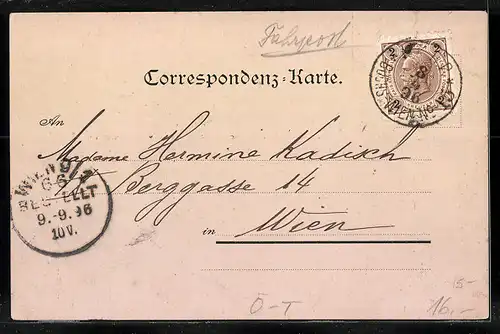 Fahrpost
Correspondenz-Karte.
An
Madame Hermine Kadisch
Berggasse 14
in Wien
WIEN 9
66
BESTELLT
9.-9.96
10V.
8
96
15-
Ö-T
16,-